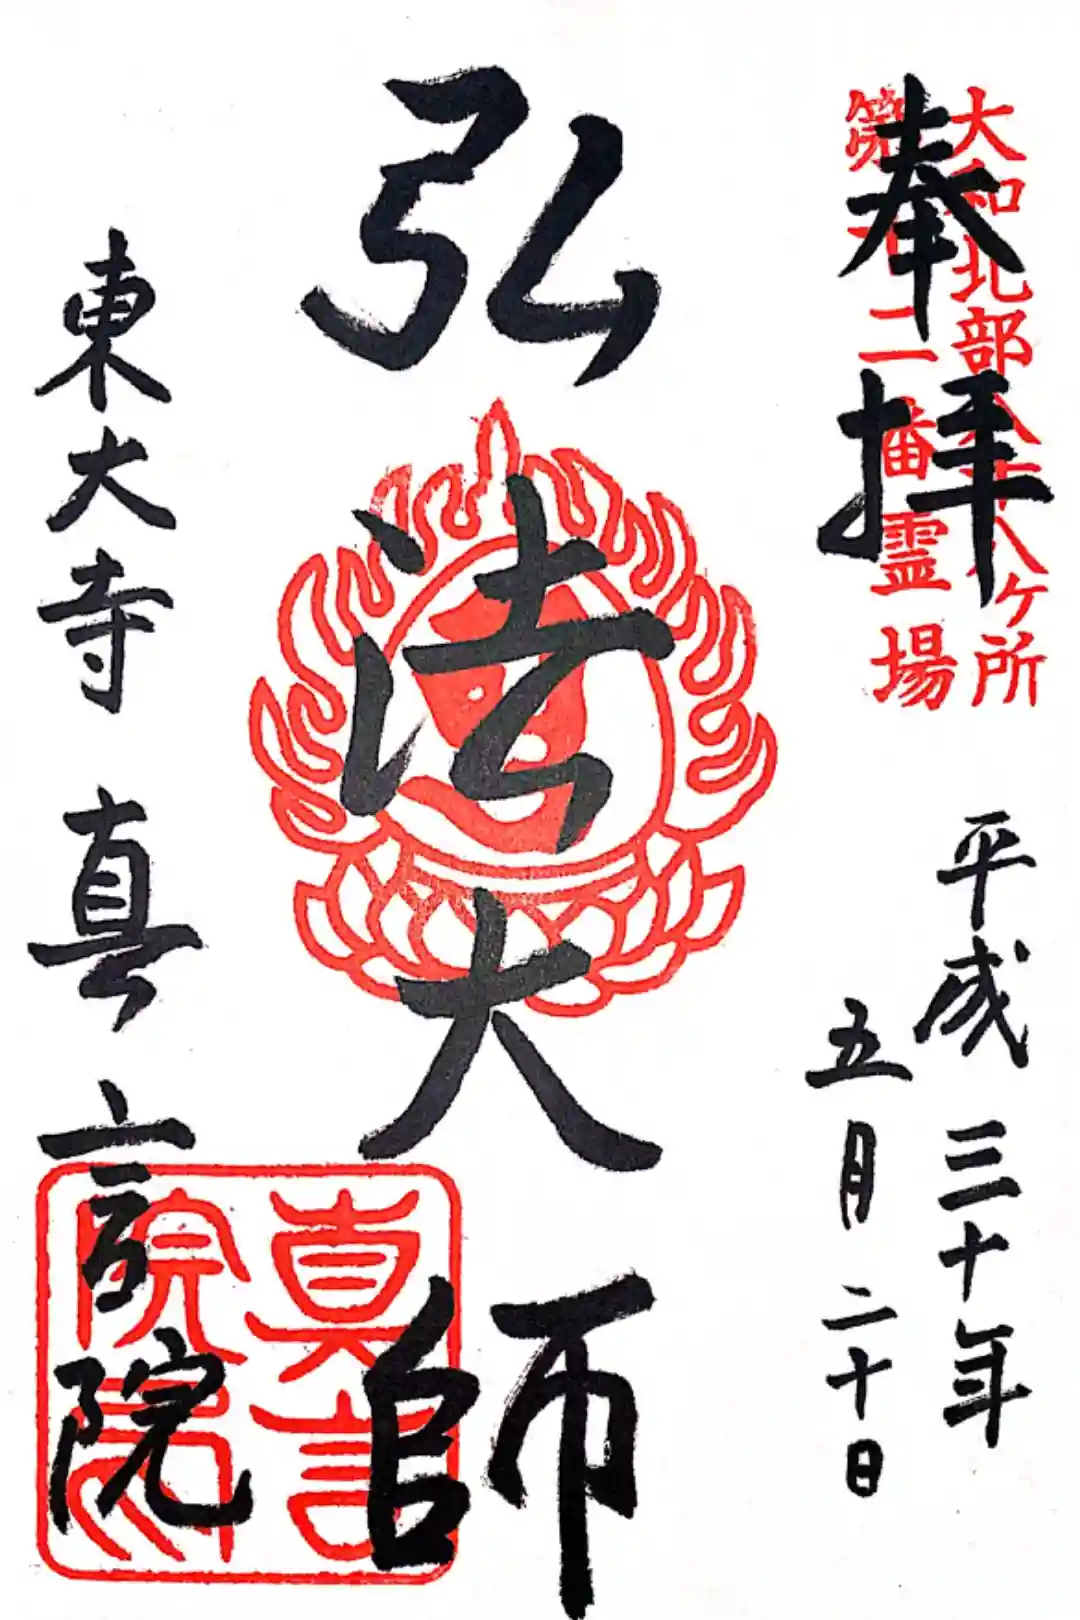 奉拝
大和北部八十八ヶ所
第十二番霊場
平成三十年
五月二十日
弘法大師
東大寺 真言院
真言
院